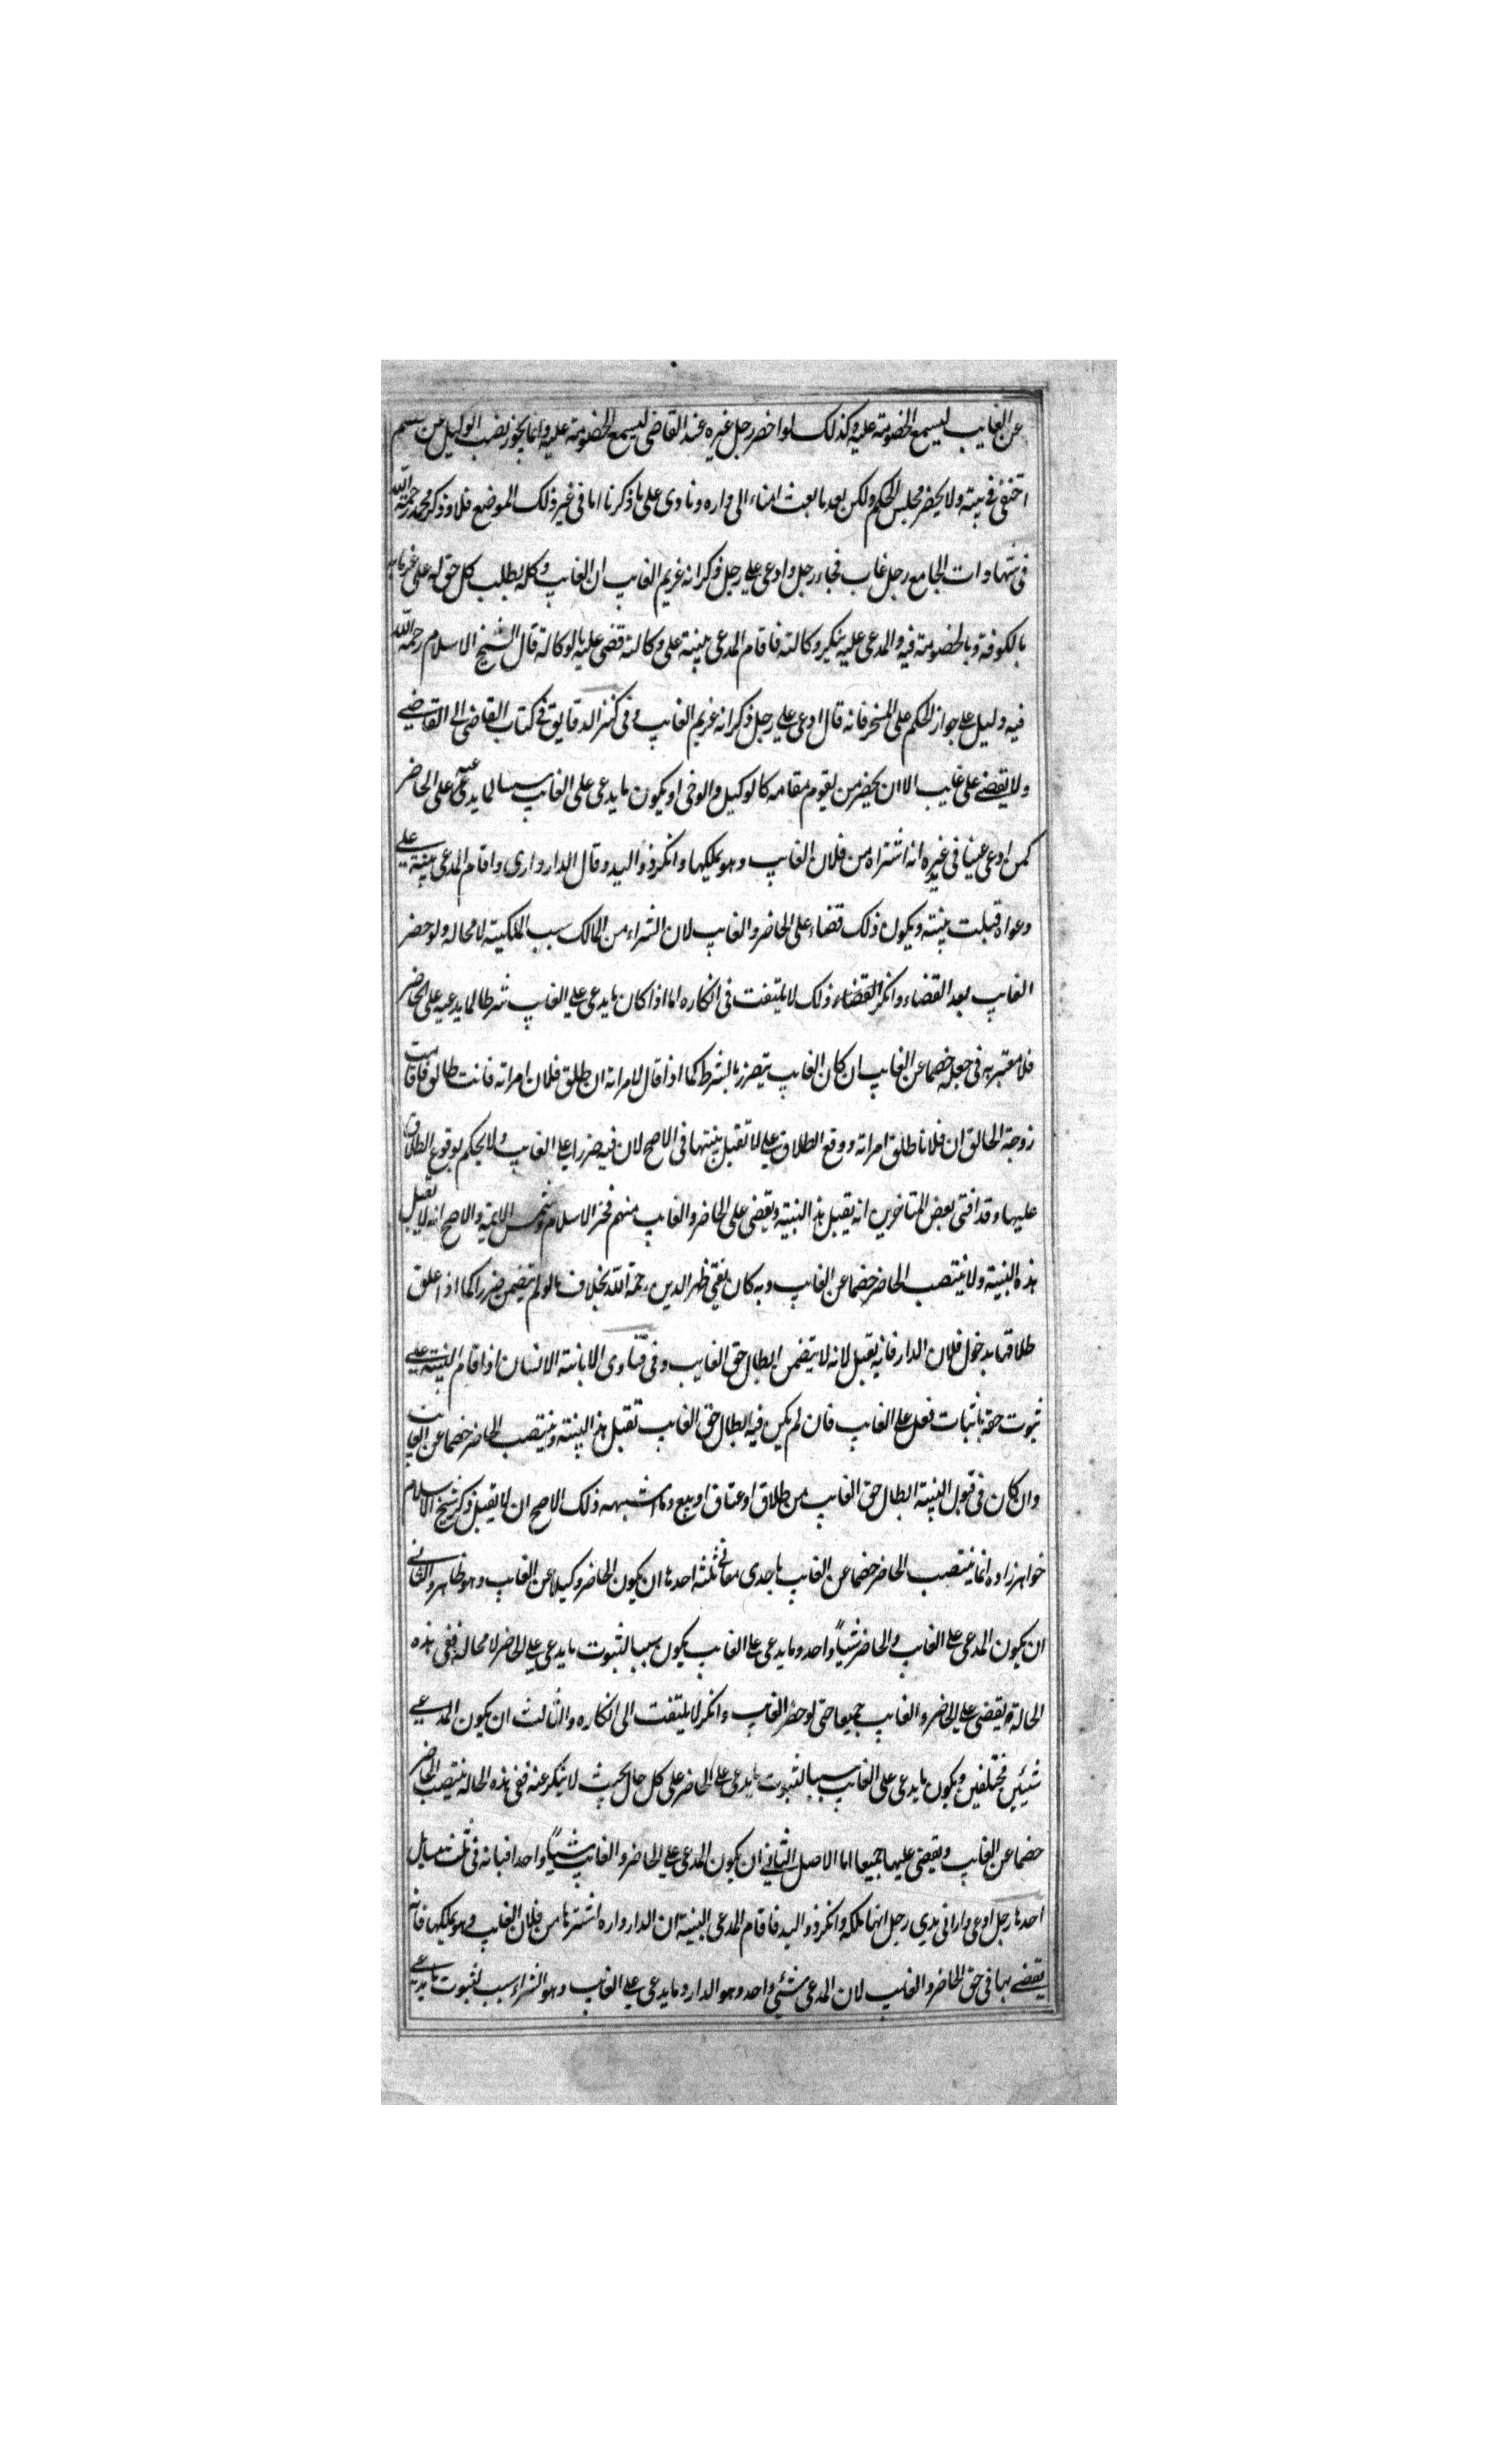 عن الغايب ليسمع الخصومة عليه وكذلك لو احضر رجل غيره عند القاضى ليسمع الخصومة عليه وانما يجوز نصب الوكيل عن خصم
اختفى فى بيته ولا يحضر مجلس الحكم ولكن بعد ما بعث امناء الى داره ونادى على ما ذكرنا اما فى غير ذلك الموضع فلا وذكر محمد رحمة الله
فى شهادات الجامع رجل غاب فجاء رجل وادعى على رجل ذكر انه غريم الغايب ان الغايب وكله بطلب كل حق له على غرمائه
بالكوفة وبالخصومة فيه والمدعى عليه ينكر وكالته فاقام المدعى بينة على وكالته قضى عليه بالوكالة قال الشيخ الاسلام رحمة الله
فيه دليل على جواز الحكم على المسخر فانه قال ادعى على رجل ذكر انه غريم الغايب وفى كنز الدقايق فى كتاب القاضى الى القاضى
ولا يقضى على غايب الا ان يحضر من يقوم مقامه كالوكيل والوصى او يكون ما يدعى على الغايب سببا لما يدعى عليه على الحاضر
كمن ادعى عينا فى يد غيره انه اشتراه من فلان الغايب وهو يملكها وانكر ذو اليد وقال الدار دارى واقام المدعى بينة على
دعواه قبلت بينته ويكون ذلك قضاء على الحاضر والغايب لان الشراء من المالك سبب الملكية لا محالة ولو حضر
الغايب بعد القضاء وانكر القضاء ذلك لا يلتفت فى انكاره اما اذا كان ما يدعى على الغايب شرطا لما يدعيه على الحاضر
فلا معتبر به فى جعله خصما عن الغايب ان كان الغايب يتضرر بالشرط كما اذا قال لامراته ان طلق فلان امراته فانت طالق فاقامت
زوجة الحالق ان فلانا طلق امراته ووقع الطلاق على لا تقبل بينتها فى الاصح لان فيه ضررا على الغايب ولا يحكم بوقوع الطلاق
عليها وقد افتى بعض المتاخرين انه يقبل هذا البينة ويقضى على الحاضر والغايب منهم فخر الاسلام وشمس الايمة والاصح انه لا يقبل
هذه البينة ولا ينتصب الحاضر خصما عن الغايب وبه كان يفتى ظهر الدين رحمة الله بخلاف ما لو لم يتضمن ضررا كما اذا علق
طلاقها بدخول فلان الدار فانه يقبل لانه لا يتضمن ابطال حق الغايب وفى فتاوى الابانة الانسان اذا اقام البينة على
ثبوت حقه باثبات فعل على الغايب فان لم يكن فيه ابطال حق الغايب تقبل هذا البينة وينتصب الحاضر خصما عن الغايب
وان كان فى قبول البينة ابطال حق الغايب من طلاق او عتاق او بيع وما اشبهه ذلك الاصح ان لا يقبل ذكر شيخ الاسلام
خواهرزاده انما ينتصب الحاضر خصما عن الغايب باحدى معانى ثلثة احدها ان يكون الحاضر وكيلا عن الغايب وهو ظاهر والثانى
ان يكون المدعى على الغايب والحاضر شيأ واحد وما يدعى على الغايب يكون سببا لثبوت ما يدعى على الحاضر لا محالة ففى هذه
الحالة يقضى على الحاضر والغايب جميعا حتى لو حضر الغايب وانكر لا يلتفت الى انكاره والثالث ان يكون المدعى
شيئين مختلفين ويكون ما يدعى على الغايب سببا لثبوت ما يدعى على الحاضر على كل حال بحيث لا ينكر عنه ففى هذه الحالة ينتصب الحاضر
خصما عن الغايب ويقضى عليها جميعا اما الاصل الثانى ان يكون المدعى على الحاضر والغايب شيأ واحدا فبيانه فى ثلث مسايل
احدها رجل ادعى دارا فى يدى رجل انها ملكه وانكر ذو اليد فاقام المدعى البينة ان الدار داره اشتراها من فلان الغايب وهو يملكها فانه
يقضى بها فى حق الحاضر والغايب لان المدعى شئى واحد وهو الدار وما يدعى على الغايب وهو الشراء سبب لثبوت ما يدعيه